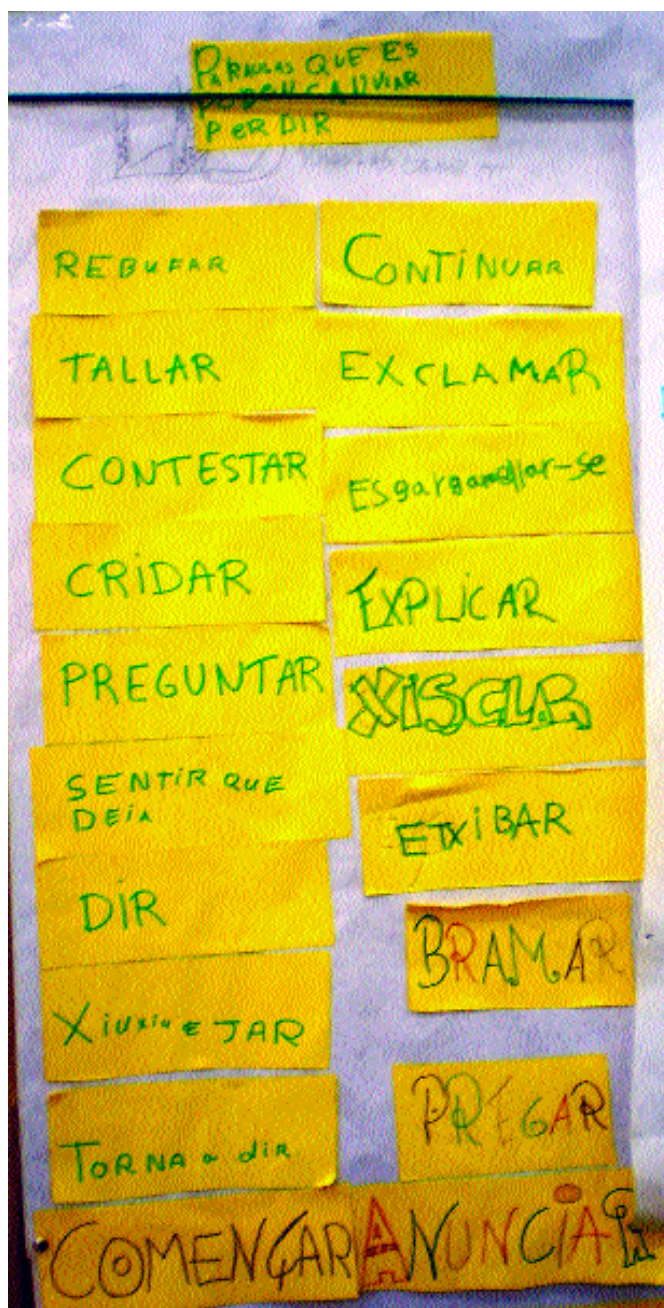 PARAULES QUE ES
PODEN CANVIAR
PER DIR
REBUFAR
TALLAR
CONTESTAR
CRIDAR
PREGUNTAR
SENTIR QUE
DEIA
DIR
XiuxiuEJAR
TORNA a dir
COMENÇAR
CONTINUAR
EXCLAMAR
Esgargamellar-se
EXPLICAR
XISCLAR
ETXIBAR
BRAMAR
PREGAR
ANUNCIAR